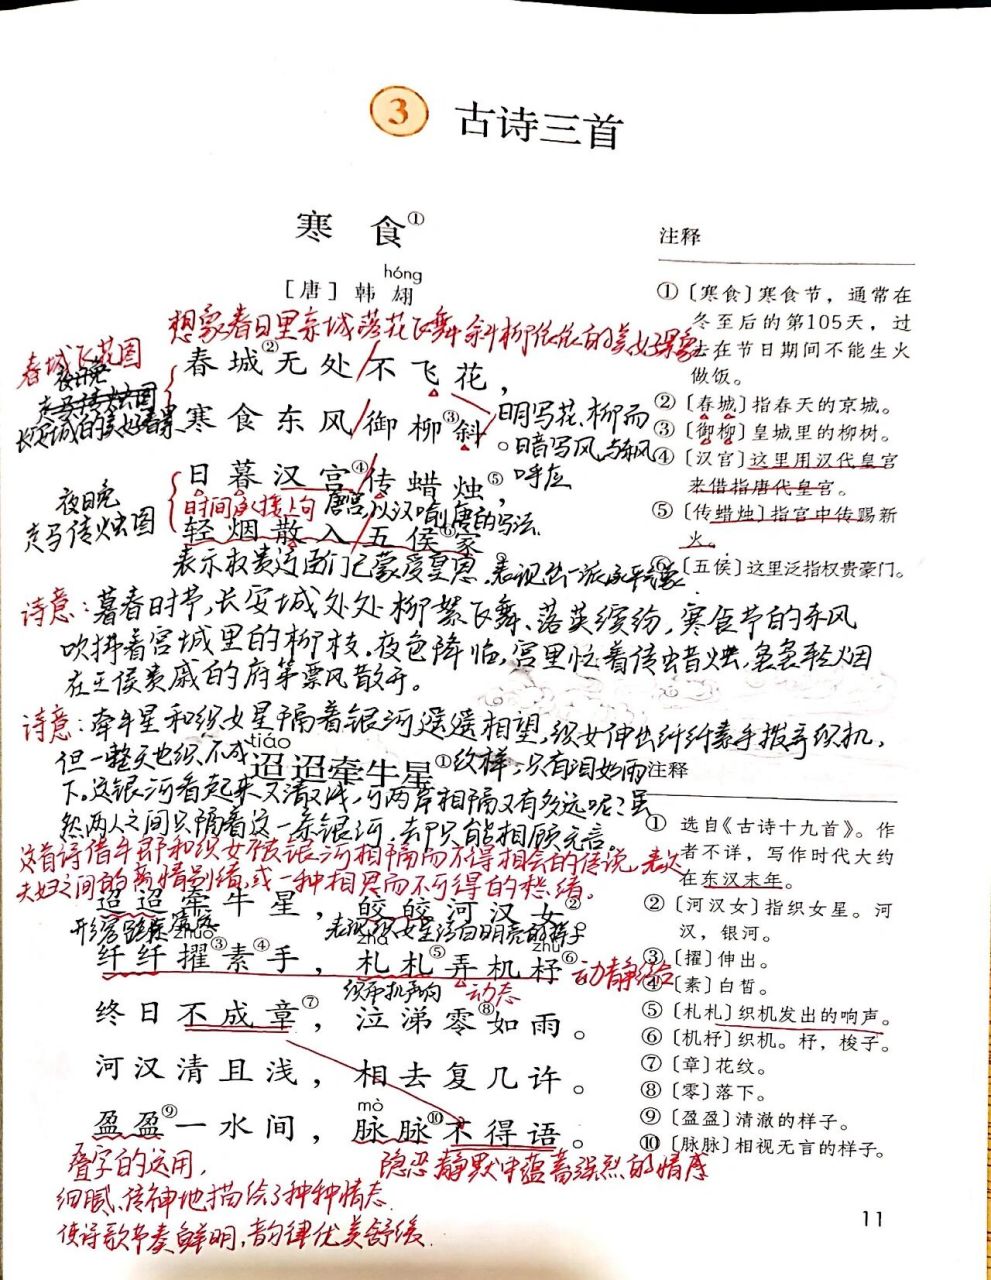 3 古诗三首
寒 食①
hóng
[唐] 韩 翃
想象春日里京城落花飞舞 斜柳依依的美好景象
春城飞花图
春城②无处不飞花，
长安城的美好春景
寒食东风御柳③斜。
明写花、柳而
暗写风,与东风
呼应
日暮汉宫④传蜡烛⑤，
夜日晚
走马传烛图
时间承接上句 唐宫,以汉喻唐的写法
轻烟散入五侯⑥家。
表示权贵近臣们已蒙受皇恩,表现出一派承平气象
诗意：暮春时节,长安城处处柳絮飞舞、落英缤纷,寒食节的东风
吹拂着宫城里的柳枝。夜色降临,宫里忙着传蜡烛,袅袅轻烟
在王侯贵戚的府第飘风散开。
注释
①〔寒食〕寒食节，通常在
冬至后的第105天，过
去在节日期间不能生火
做饭。
②〔春城〕指春天的京城。
③〔御柳〕皇城里的柳树。
④〔汉宫〕这里用汉代皇宫
来借指唐代皇宫。
⑤〔传蜡烛〕指宫中传赐新
火。
⑥〔五侯〕这里泛指权贵豪门。
诗意：牵牛星和织女星隔着银河遥遥相望,织女伸出纤纤素手拨弄织机,
但一整天也织不成
纹样,只有泪如雨
下。这银河看起来又清又浅,可两岸相隔又有多远呢?虽
然两人之间只隔着这一条银河,却只能相顾无言。
tiáo
迢迢牵牛星①
这首诗借牛郎和织女被银河相隔而不得相会的传说,表达
夫妇之间的离情别绪,或一种相思而不可得的愁绪。
迢迢牵牛星，皎皎河汉女②。
形容路途遥远
表现织女星洁白明亮的样子
zhuó zhá zhù
纤纤擢③素④手，札札⑤弄机杼⑥。
动静结合
织布机声响
动态
终日不成章⑦，泣涕零⑧如雨。
河汉清且浅，相去复几许。
mò
盈盈⑨一水间，脉脉⑩不得语。
叠字的运用,
细腻、传神地描绘了种种情态.
使诗歌节奏鲜明,韵律优美舒缓.
隐忍静默中蕴蓄强烈的情感
注释
① 选自《古诗十九首》。作
者不详，写作时代大约
在东汉末年。
②〔河汉女〕指织女星。河
汉，银河。
③〔擢〕伸出。
④〔素〕白皙。
⑤〔札札〕织机发出的响声。
⑥〔机杼〕织机。杼，梭子。
⑦〔章〕花纹。
⑧〔零〕落下。
⑨〔盈盈〕清澈的样子。
⑩〔脉脉〕相视无言的样子。
11